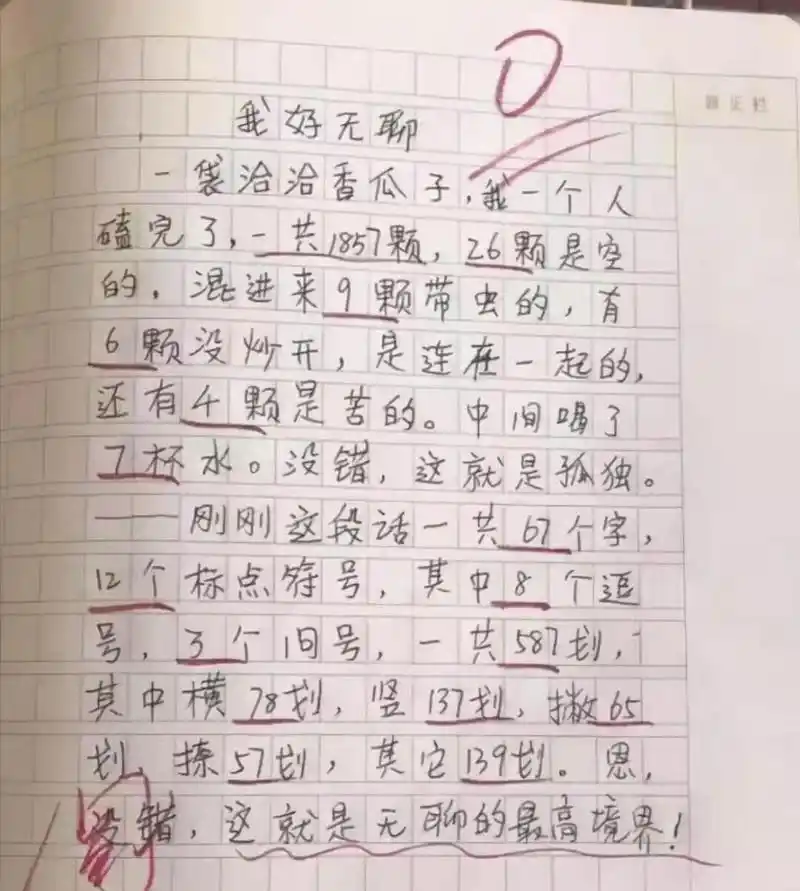 0
订正栏
我好无聊
一袋洽洽香瓜子,我一个人
磕完了,一共1857颗,26颗是空
的,混进来9颗带虫的,有
6颗没炒开,是连在一起的,
还有4颗是苦的。中间喝了
7杯水。没错,这就是孤独。
——刚刚这段话一共67个字,
12个标点符号,其中8个逗
号,3个句号,一共587划,
其中横78划,竖137划,撇65
划,捺57划,其它139划。恩,
没错,这就是无聊的最高境界!